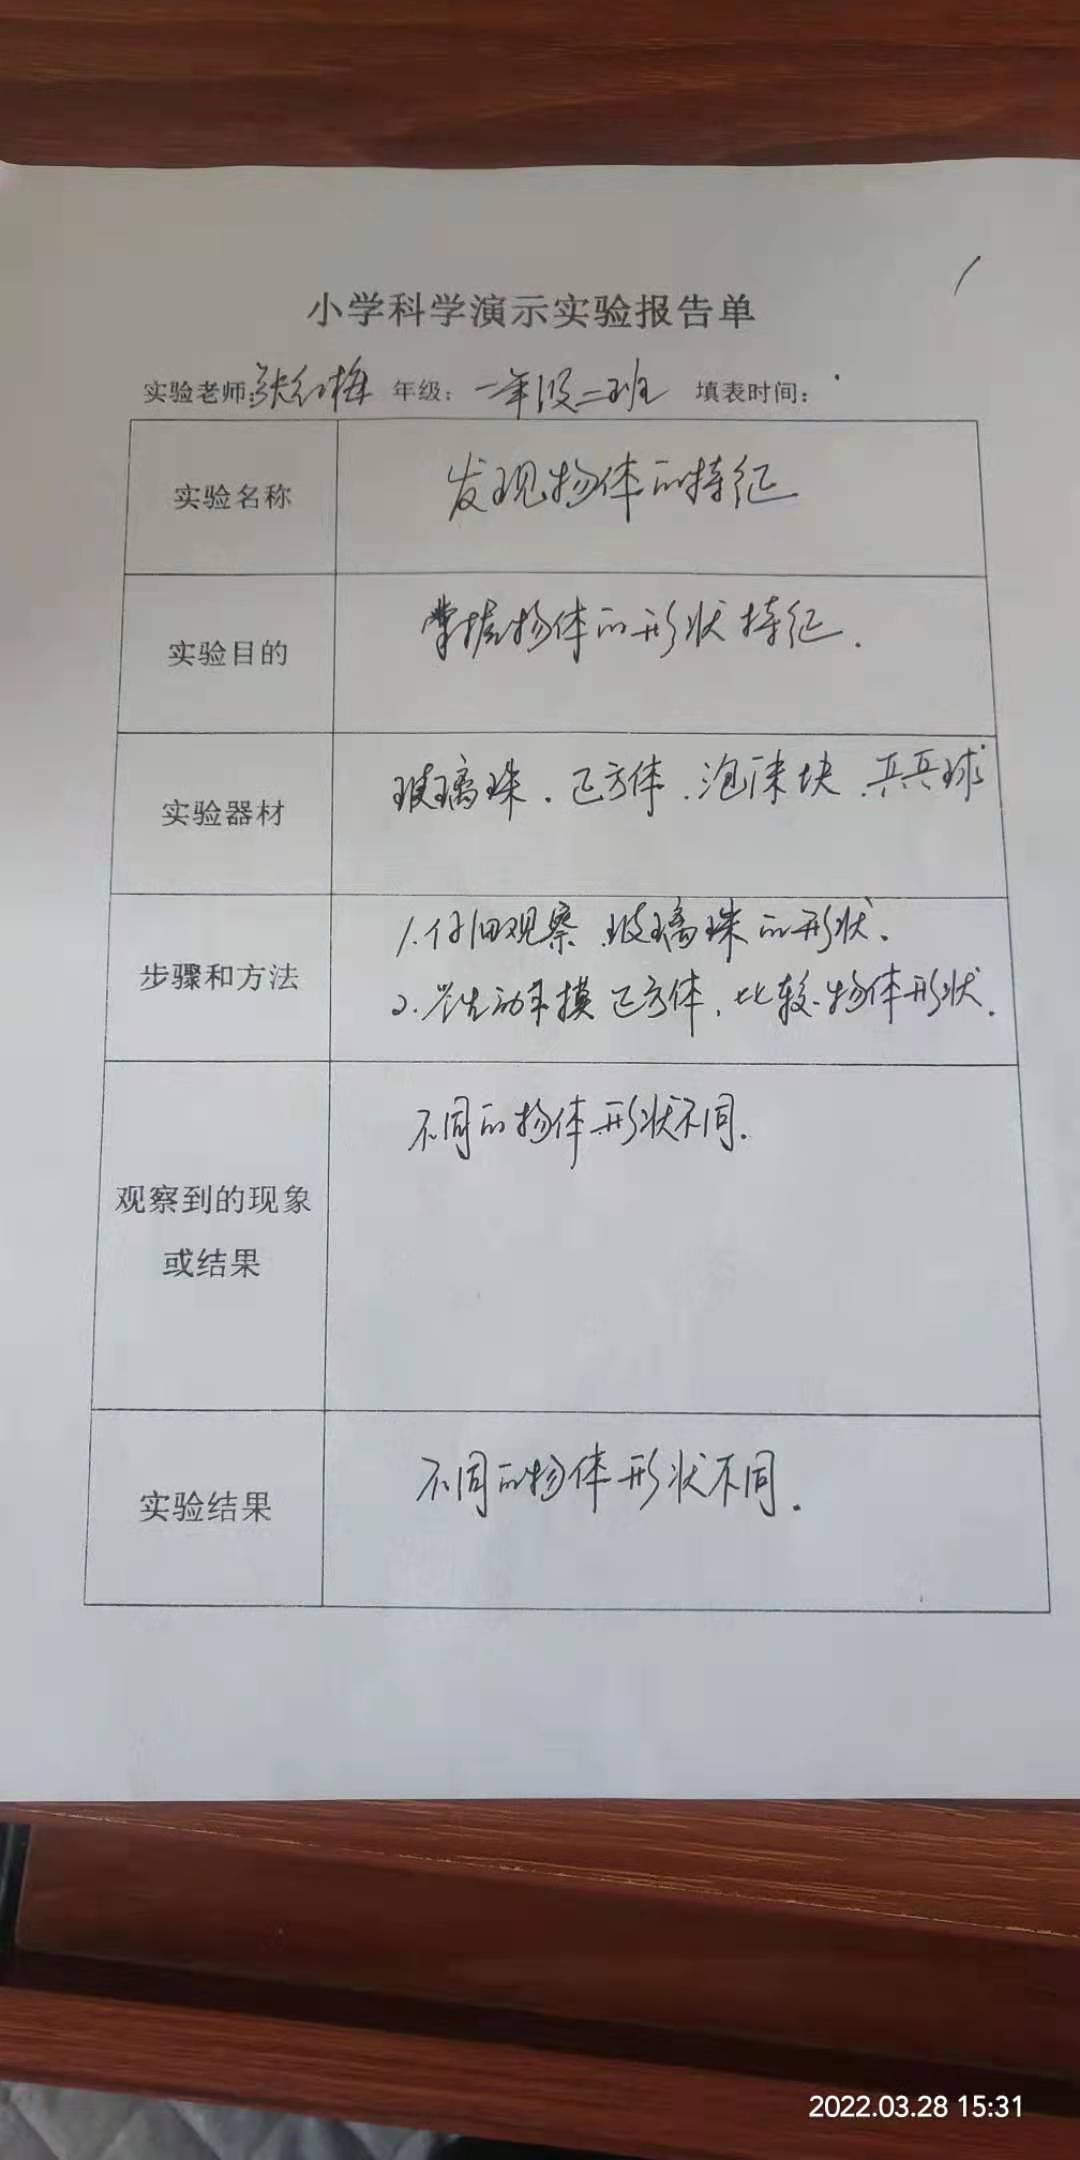 小学科学演示实验报告单
实验老师:张红梅 年级: 一年级二班 填表时间:
实验名称 发现物体的特征
实验目的 掌握物体的形状特征.
实验器材 玻璃珠、正方体、泡沫块、乒乓球
步骤和方法 1.仔细观察玻璃珠的形状.
2.学生动手摸正方体,比较物体形状.
观察到的现象 不同的物体形状不同.
或结果
实验结果 不同的物体形状不同.
2022.03.28 15:31